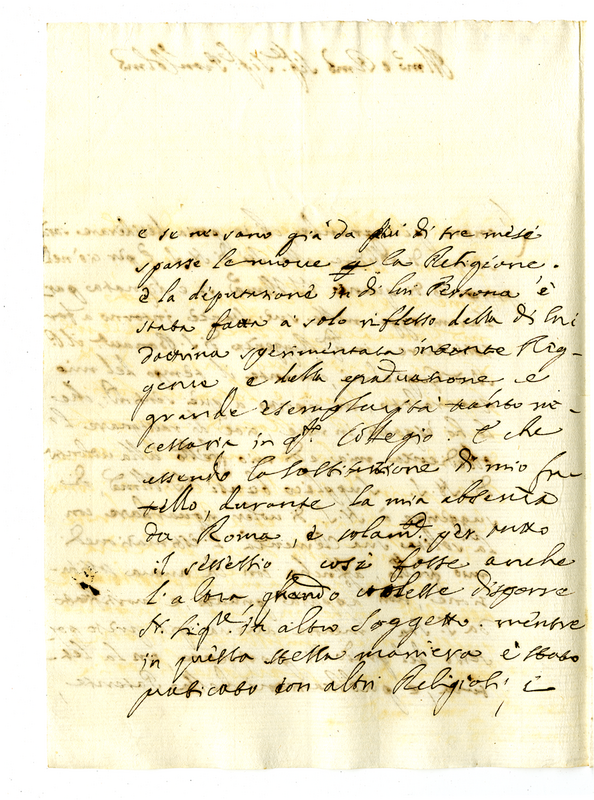 e se ne sono già da più di tre mesi
sparse le nuove p la Religione.
e la deputazione in di lui Persona è
stata fatta a solo riflesso della di lui
dottrina sperimentata in Reg-
genze, e della graduazione e
grande esemplarità tanto ne-
cessaria in q.to Collegio. E che
essendo la sostituzione di mio fra-
tello, durante la mia absenza
da Roma, è solam.te per tutto
il sessessio, così fosse anche
l'altra, quando volesse disporre
N. Sig.re in altro Soggetto. mentre
in questa stessa maniera è stato
praticato con altri Religiosi, E